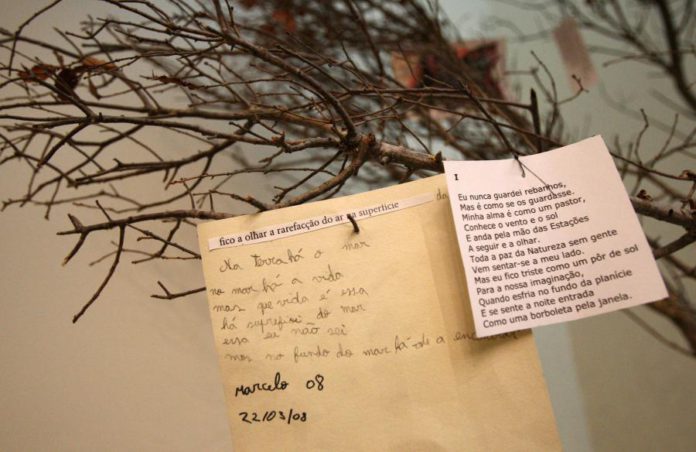 fico a olhar a rarefacção do ar na superfície
Na terra há o mar
no mar há a vida
mas que vida é essa
há superfici do mar
essa eu não sei
mas no fundo do mar há-de a
Marcelo 08
22/03/08
I
Eu nunca guardei rebanhos,
Mas é como se os guardasse.
Minha alma é como um pastor,
Conhece o vento e o sol
E anda pela mão das Estações
A seguir e a olhar.
Toda a paz da Natureza sem gente
Vem sentar-se a meu lado.
Mas eu fico triste como um pôr de sol
Para a nossa imaginação,
Quando esfria no fundo da planície
E se sente a noite entrada
Como uma borboleta pela janela.